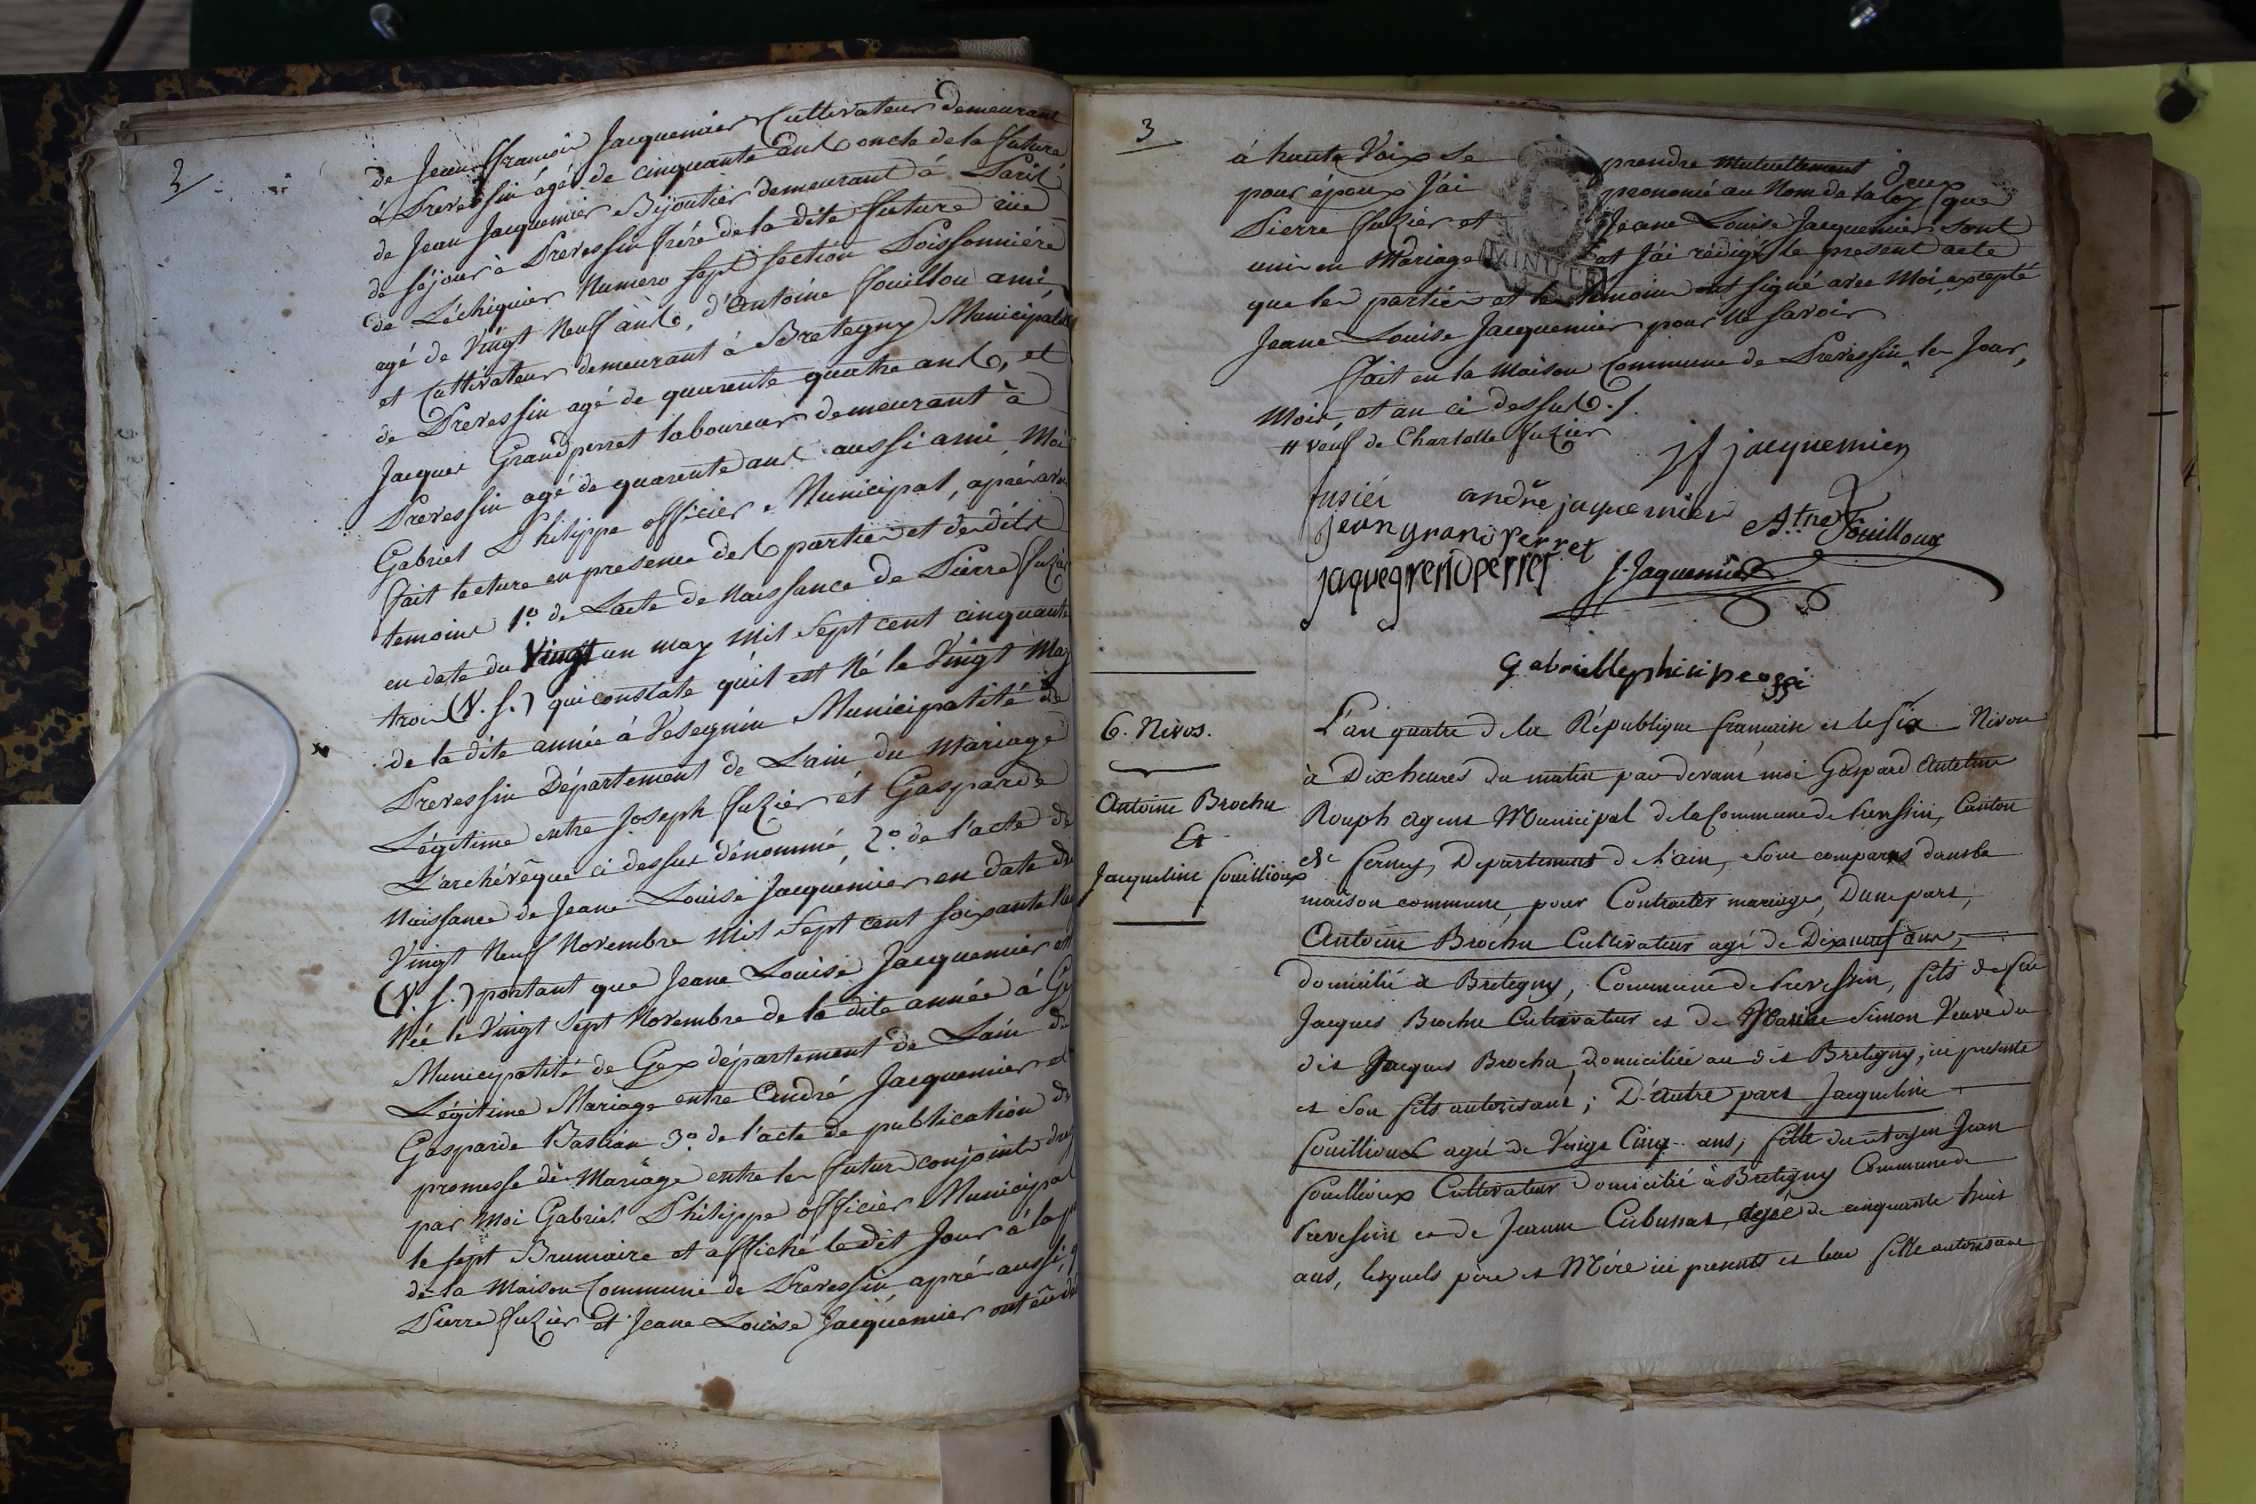 2
de Jean ffrancois Jacquemier Cultivateur demeurant
à Prevessin âgé de cinquante ans oncle de la future
de Jean Jacquemier Bijoutier demeurant à Paris
de séjour à Prevessin frére de la dite future rüe
de Léchiquier Numero sept section Poissonniére
agé de Vingt Neuf ans, d'Antoine ffouilloux ami
et Cultivateur demeurant à Bretegny Municipalité
de Prevessin agé de quarente quatre ans, et
Jacques Grandperret laboureur demeurant à
Prevessin agé de quarente ans aussi ami Moi
Gabriel Philippe officier Municipal, aprés avoir
fait lecture en presence des parties et des dits
temoins 1.º de Lacte de Naissance de Pierre ffuzier
en date du Vingt un may mil sept cent cinquante
trois (V. s.) qui constate qu'il est Né le Vingt May
de la dite année à Vesegnin Municipalité de
Prevessin Département de Lain du Mariage
Légitime entre Joseph ffuzier et Gasparde
L'archévêque ci dessus dénommé, 2.º de l'acte de
Naissance de Jeane Louise Jacquemier en date du
Vingt Neuf Novembre mil sept cent soixante
(V. s.) portant que Jeane Louise Jacquemier est
Née le Vingt sept Novembre de la dite année à Gex
Municipalité de Gex département de Lain de
Légitime Mariage entre André Jacquemier et
Gasparde Bastian 3.º de l'acte de publication de
promesse de Mariage entre les futurs conjoints
par Moi Gabriel Philippe officier Municipal
le sept Brumaire et affiché le dit Jour à la
de la Maison Commune de Prevessin, aprés aussi
Pierre ffuzier et Jeane Louise Jacquemier ont
3
à haute Voix se prendre Mutuellement
pour époux J'ai prononcé au Nom de la loy que
Pierre ffuzier et Jeane Louise Jacquemier sont
unis en Mariage et J'ai rédigé le present acte
MINUTE
que les parties et les temoins ont signé avec Moi excepté
Jeane Louise Jacquemier pour Ne savoir
ffait en la Maison Commune de Prevessin les Jour,
Mois, et an ci dessus./.
# veuf de Charlotte ffuzier
jf jacquemier
fusiér andre jaquemier
A.tne Fouilloux
jean grand perret
jaque grendperret J. Jaquemier
gabriellephilipe offi
6. Nivos.
Antoine Brochu
Et
Jacqueline fouillioux
L'an quatre de la République francaise et le six Nivose
à Dix heures du matin par devant moi Gaspard Antelme
Rouph Agent Municipal de la Commune de Prevessin, Canton
de ferney, Departement de l'ain, sont comparus dans la
maison commune, pour Contracter mariage, Dune part,
Antoine Brochu Cultivateur agé de Dixneuf ans,
domicilié à Bretegny, Commune de Prevessin, fils de feu
Jacques Brochu Cultivateur et de Marie Simon Veuve du
dit Jacques Brochu, domiciliée au dit Bretigny, ici presente
et son fils autorisant; D'autre part Jacqueline
fouillioux agée de Vingt Cinq ans, fille du citoyen Jean
fouillioux Cultivateur domicilié à Bretigny Commune de
Prevessin et de Jeanne agée de cinquante huit
ans, lesquels père et Mère ici presents et leur fille autorisant